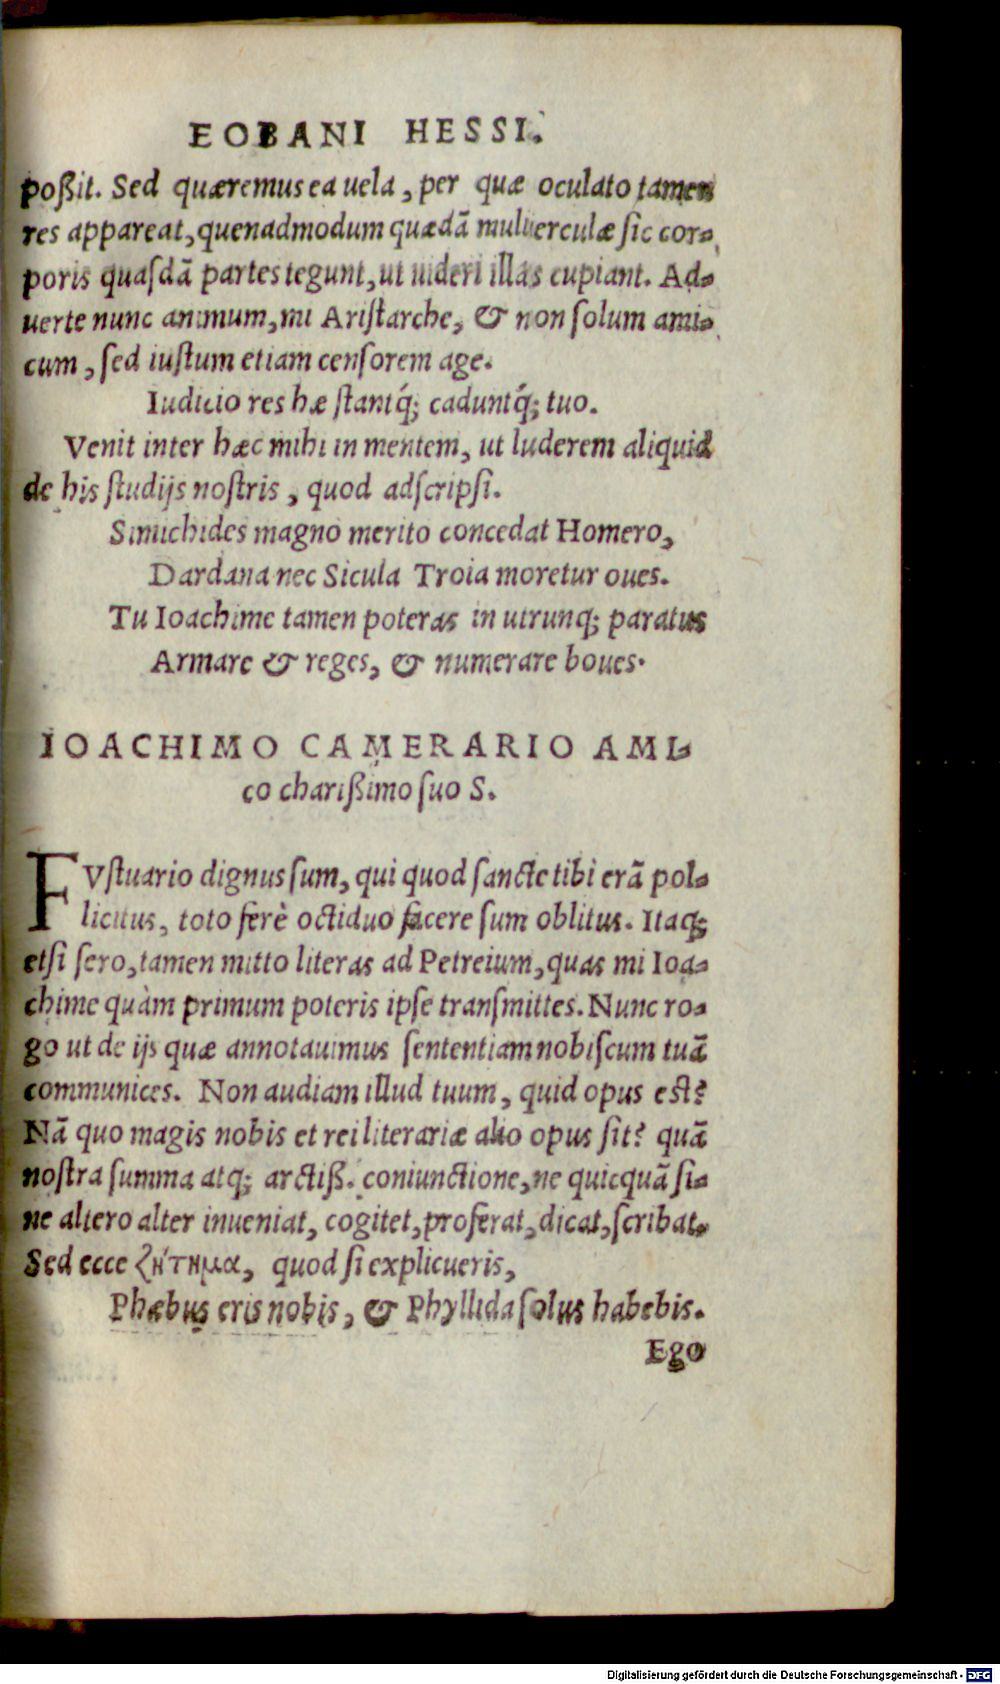 EOBANI HESSI.
poßit. Sed quæremus ea uela, per quæ oculato tamen
res appareat, quenadmodum quædã mulierculæ sic cor⸗
poris quasdã partes tegunt, ut uideri illas cupiant. Ad⸗
uerte nunc animum, mi Aristarche, & non solum ami⸗
cum, sed iustum etiam censorem age.
Iudicio res hæ stantq́; caduntq́; tuo.
Venit inter hæc mihi in mentem, ut luderem aliquid
de his studijs nostris, quod adscripsi.
Simichides magno merito concedat Homero,
Dardana nec Sicula Troia moretur oues.
Tu Ioachime tamen poteras in utrunq; paratus
Armare & reges, & numerare boues.
IOACHIMO CAMERARIO AMI⸗
co charißimo suo S.
FVstuario dignus sum, qui quod sancte tibi erã pol⸗
licitus, toto ferè octiduo facere sum oblitus. Itaq;
etsi sero, tamen mitto literas ad Petreium, quas mi Ioa⸗
chime quàm primum poteris ipse transmittes. Nunc ro⸗
go ut de ijs quæ annotauimus sententiam nobiscum tuã
communices. Non audiam illud tuum, quid opus est?
Nã quo magis nobis et rei literariæ alio opus sit? quã
nostra summa atq; arctiß. coniunctione, ne quicquã si⸗
ne altero alter inueniat, cogitet, proferat, dicat, scribat.
Sed ecce ζήτημα, quod si explicueris,
Phæbus eris nobis, & Phyllida solus habebis.
Ego
Digitalisierung gefördert durch die Deutsche Forschungsgemeinschaft - DFG